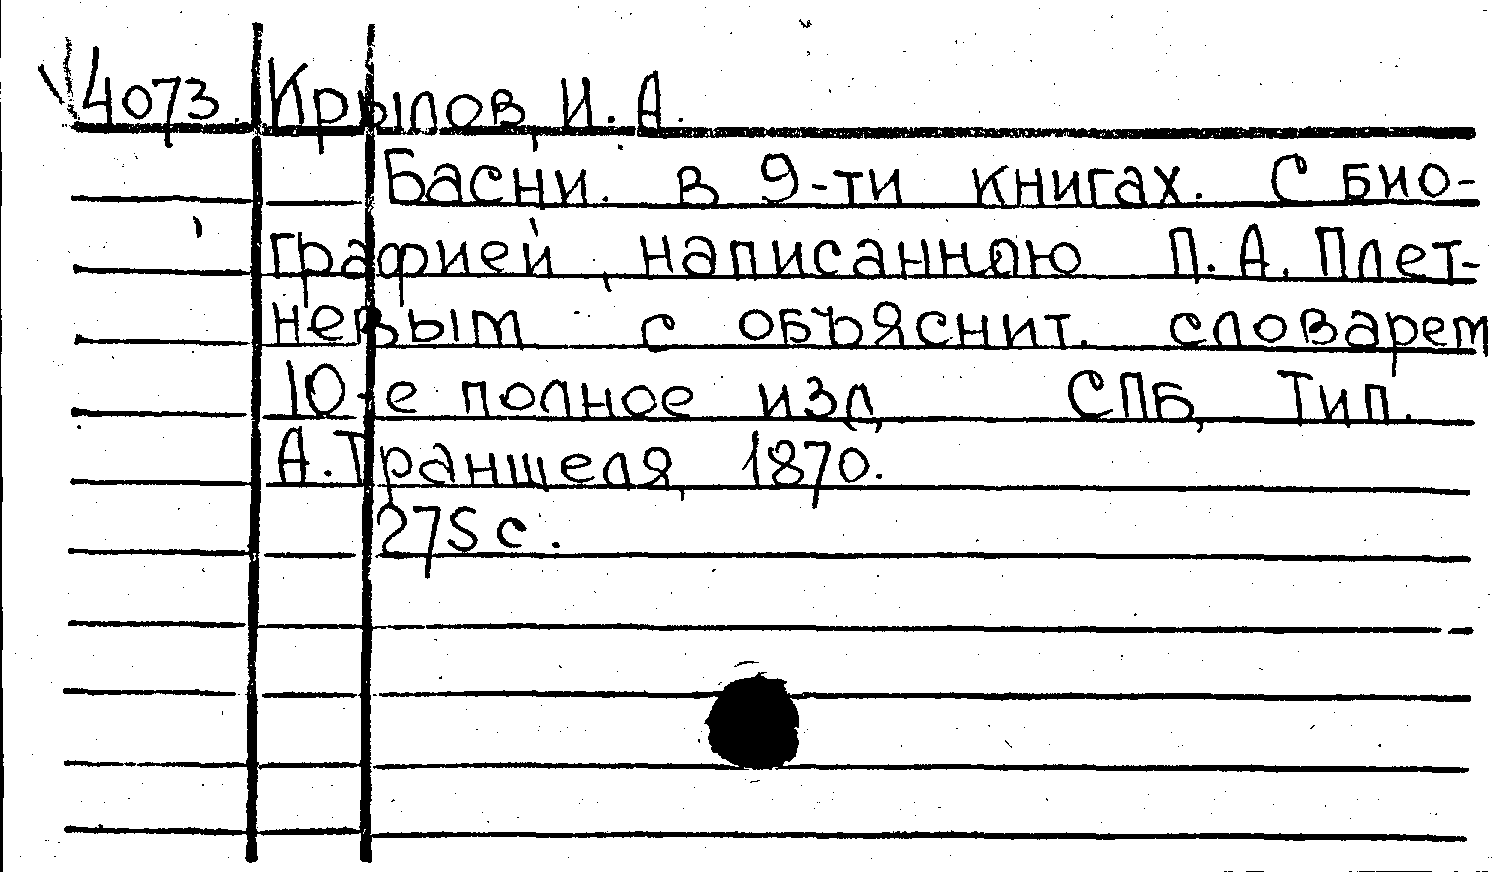 4073. Крылов, И. А.
Басни. в 9-ти книгах. С био-
графией, написанною П. А. Плет-
невым с объяснит. словарем
10-е полное изд, СПБ, Тип.
А. Траншеля, 1870.
275 с.